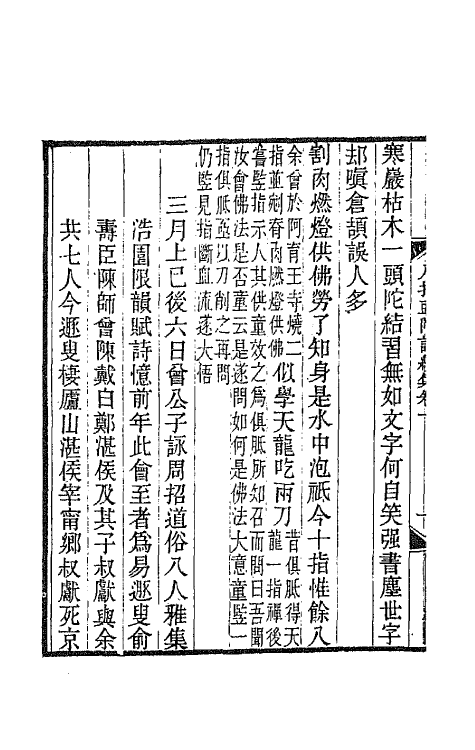 寒巖枯木一頭陀結習無如文字何自笑强書塵世字
却嗔倉頡誤人多
割肉燃燈供佛勞了知身是水中泡祇今十指惟餘八
余曾於阿育王寺燒二
指並剜脊肉燃燈供佛
似學天龍吃兩刀
昔俱胝得天
龍一指禪後
嘗竪指示人其供童效之爲俱胝所知召而問曰吾聞
汝會佛法是否童云是遂問如何是佛法大意童竪一
指俱胝亟以刀削之再問
仍竪見指斷血流遂大悟
三月上巳後六日曾公子詠周招道俗八人雅集
浩園限韻賦詩憶前年此會至者爲易遯叟俞
壽臣陳師曾陳戴白鄭湛侯及其子叔獻與余
共七人今遯叟棲廬山湛侯宰甯鄉叔獻死京